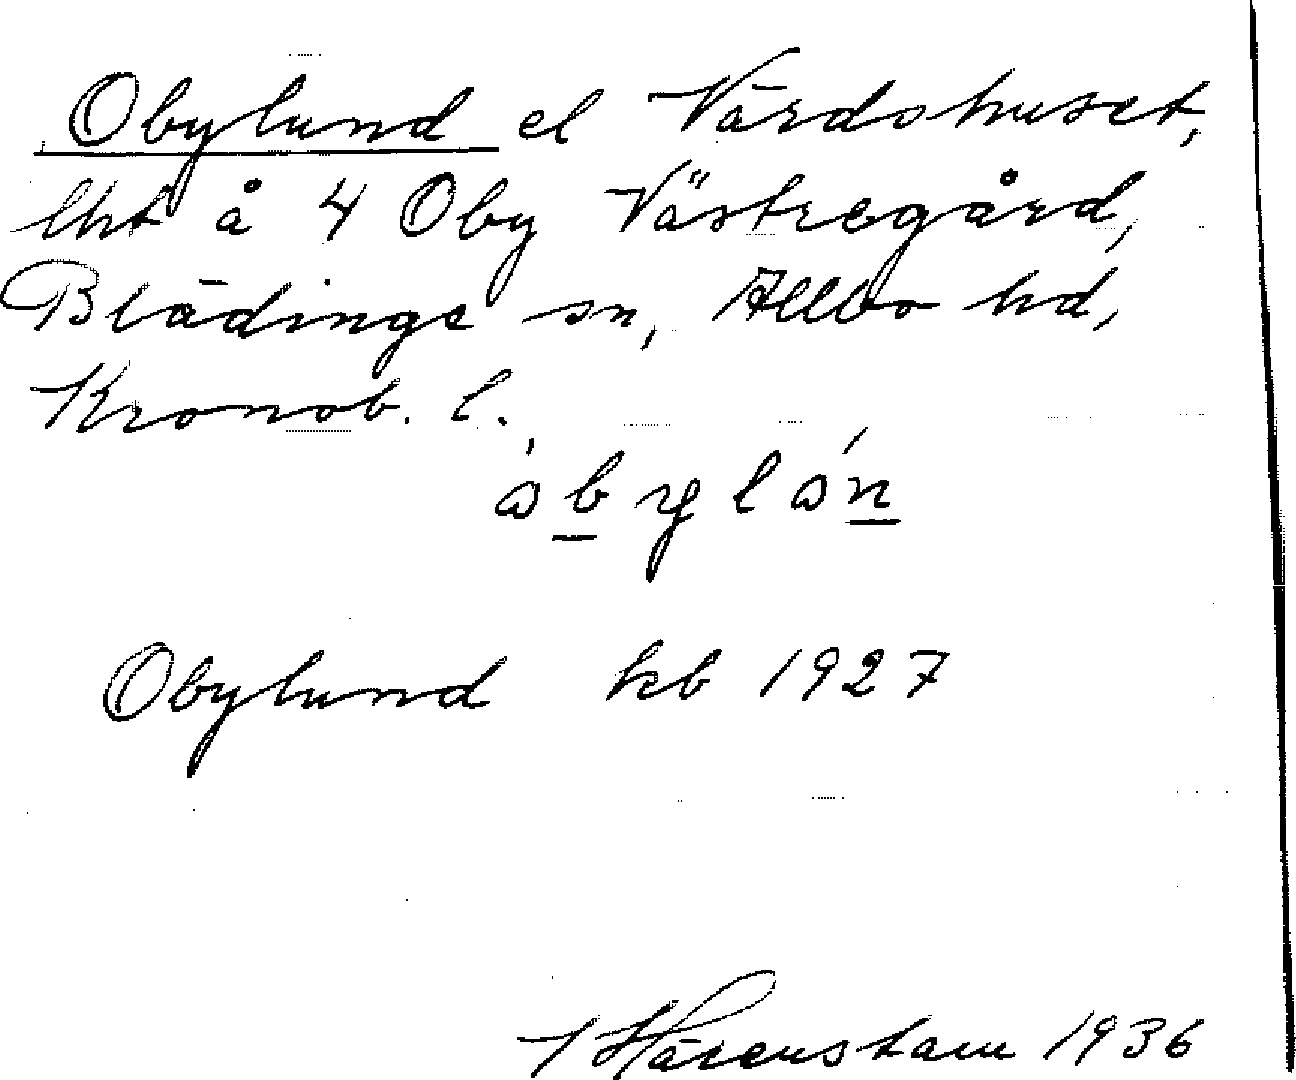 Obylund el Värdshuset,
lht å 4 Oby Västregård,
Blädinge sn, Allbo hd,
Kronob. l.
Obylund kb 1927
Härenstam 1936